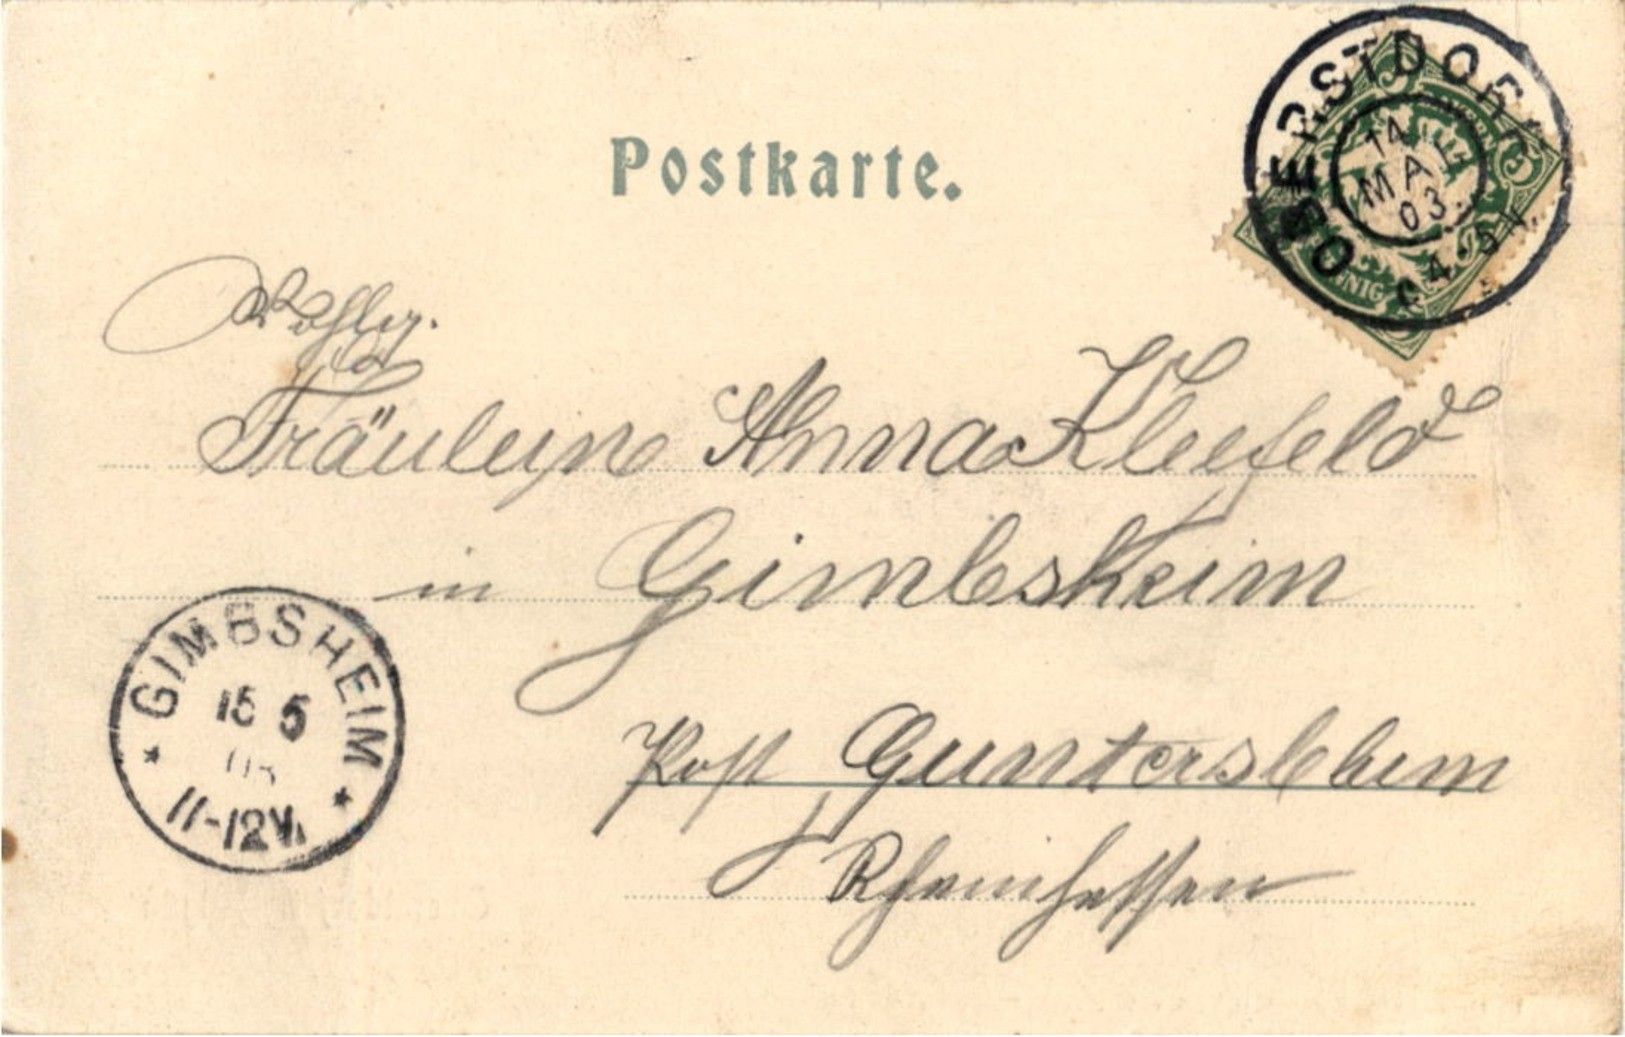 Postkarte.
OBERSTDORF
14
MAI
03.
4-5N.
Wohlg.
Fräulein Anna Kleefeld
in Gimbsheim
GIMBSHEIM
15 5
03
11-12V.
Post Guntersblum
Rheinhessen